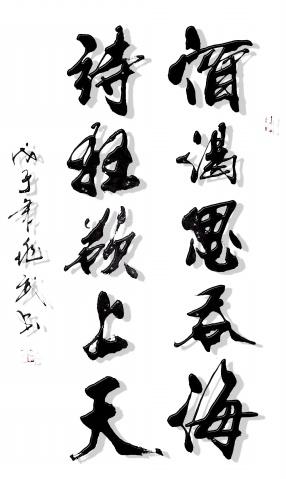 酒渴思吞海
詩狂欲上天
戊子年